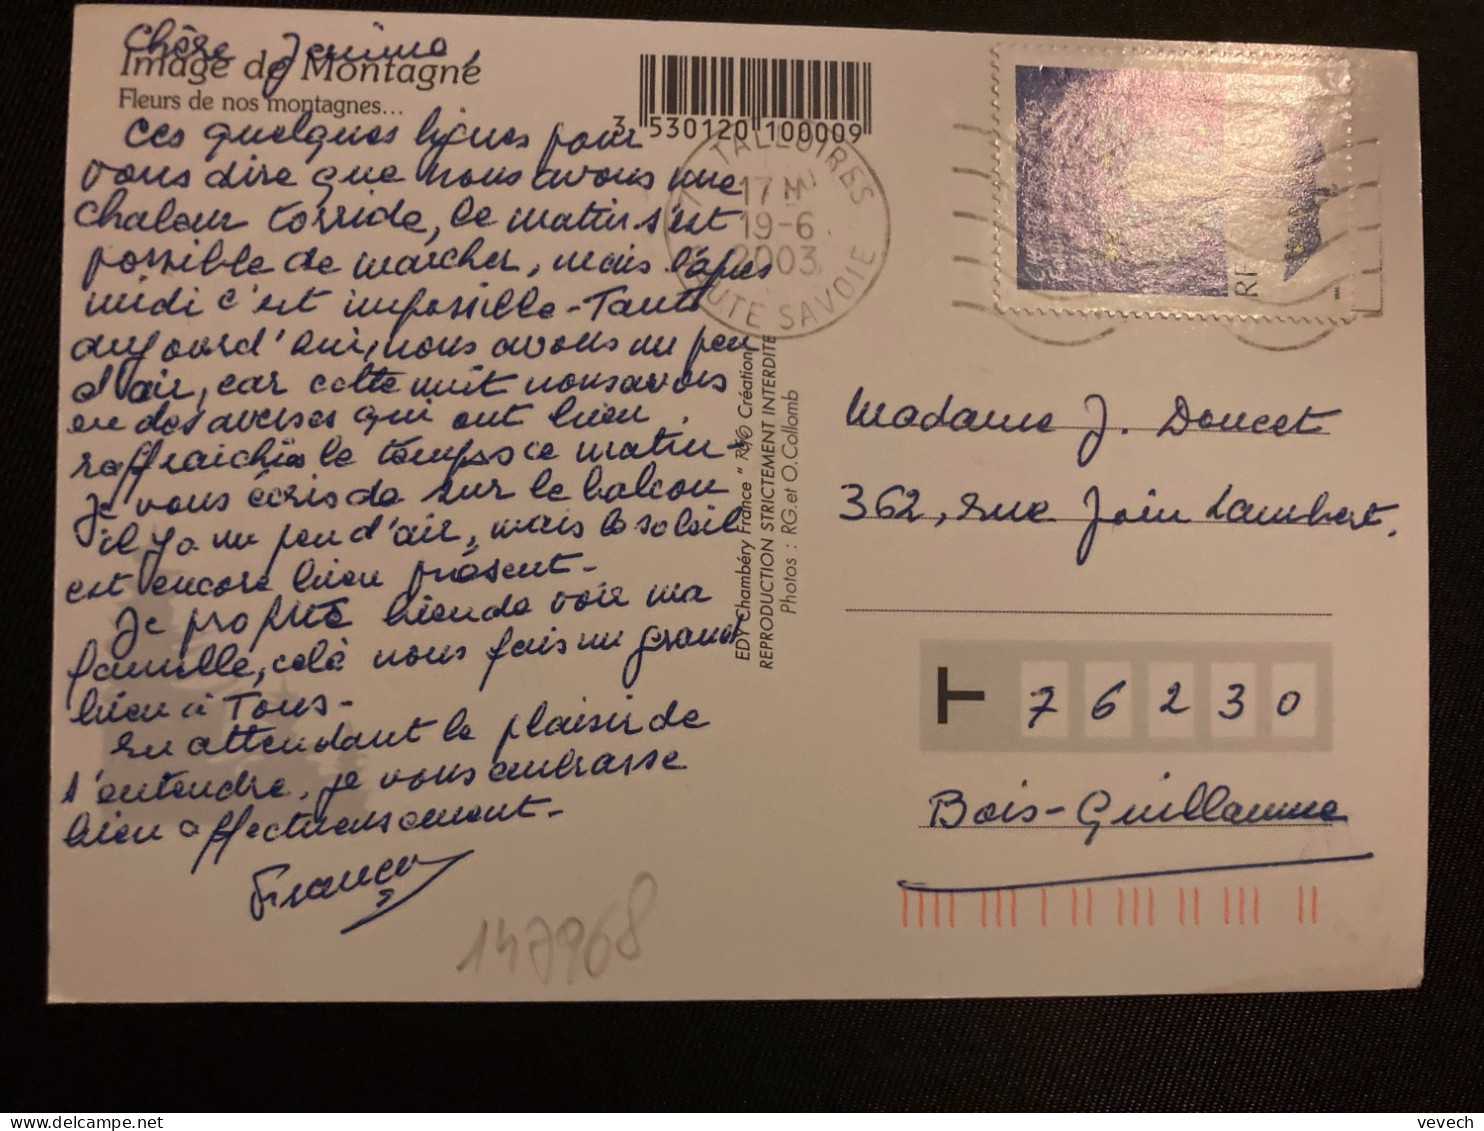 Chère
Image de Montagne
Fleurs de nos montagnes...
Ces quelques lignes pour
vous dire que nous avons une
chaleur torride, le matin s'est
possible de marcher, mais l'après
midi c'est impossible - Tant
aujourd'hui, nous avons un peu
d'air, car cette nuit nous avons
eu des averses qui ont bien
raffraichis le temps ce matin -
Je vous écris de sur le balcon
il y a un peu d'air, mais le soleil
est encore bien présent -
Je profite bien de voir ma
famille, celà nous fais un grand
bien à Tous -
En attendant le plaisir de
s'entendre, je vous embrasse
bien affectueusement -
147968
3 530120 100009
74 TALLOIRES
17 H
19-6
2003
HAUTE SAVOIE
RF
EDY Chambéry France " R/G Création
REPRODUCTION STRICTEMENT INTERDITE
Photos : RG. et O. Collomb
Madame J. Doucet
362, rue Join Lambert.
T 7 6 2 3 0
Bois-Guillaume
vevech